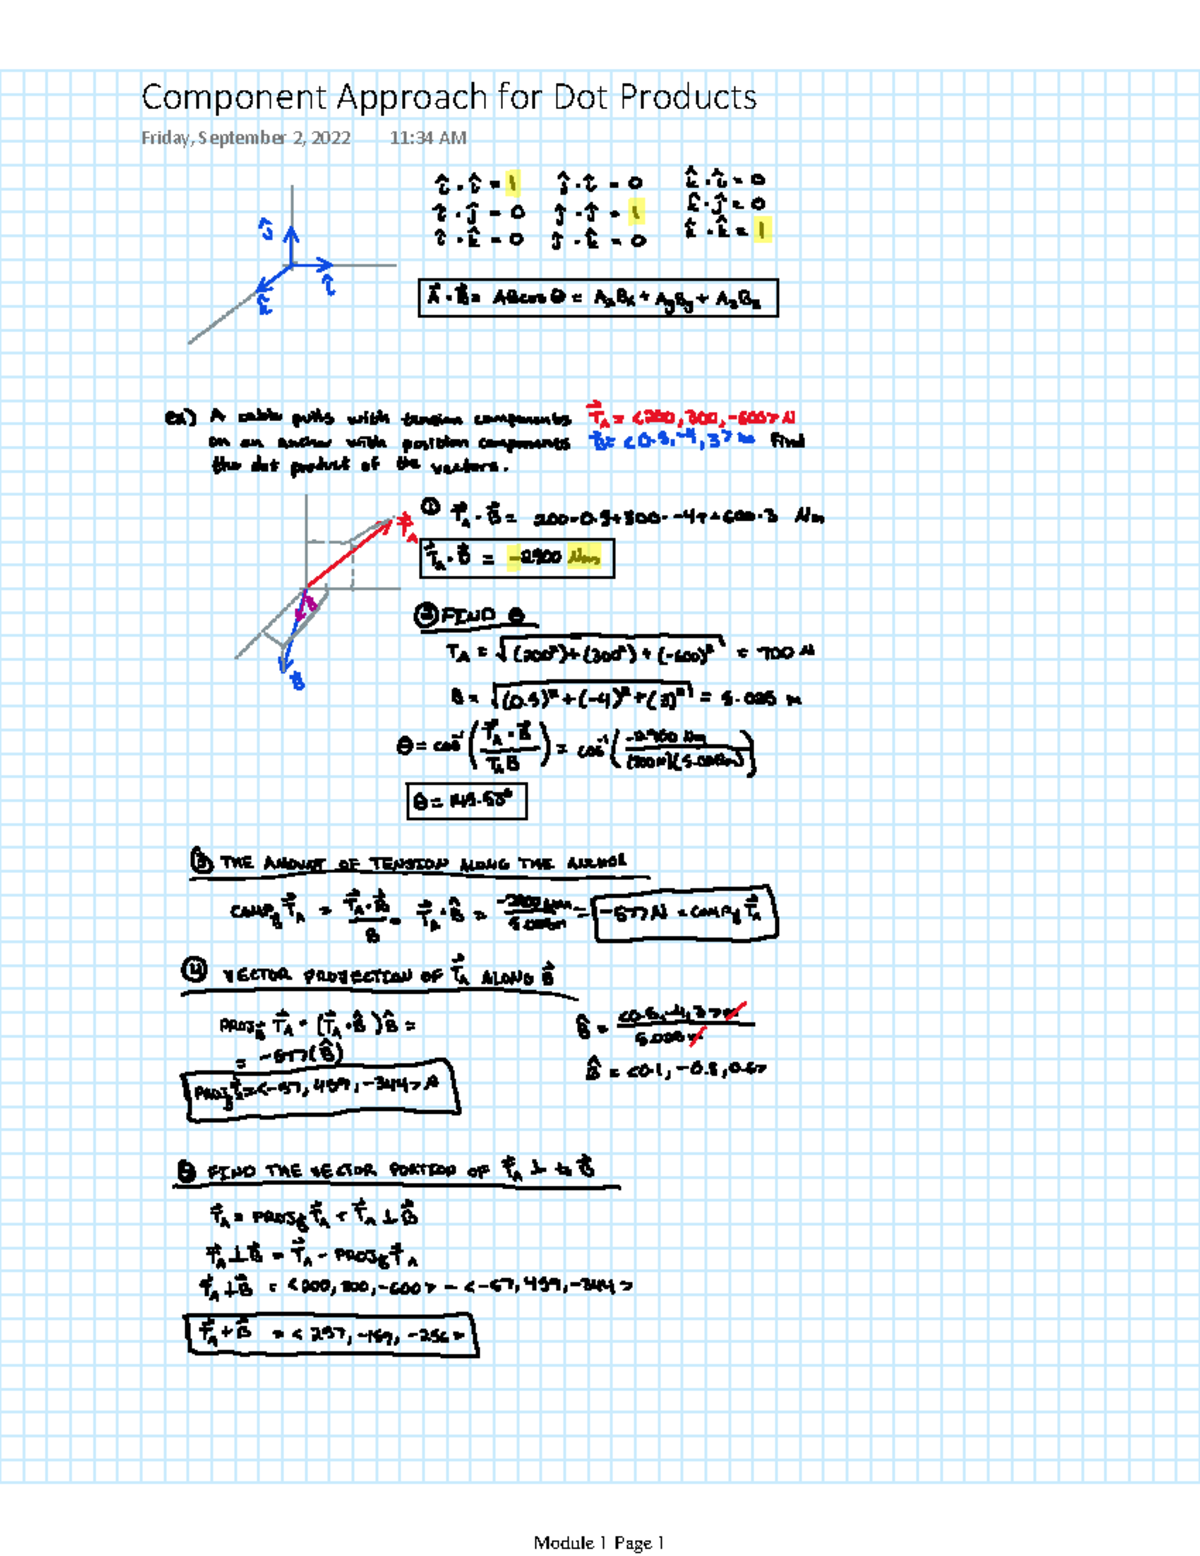 Component Approach for Dot Products
Friday, September 2, 2022 11:34 AM
î · î = 1 ĵ · î = 0 k̂ · î = 0
î · ĵ = 0 ĵ · ĵ = 1 k̂ · ĵ = 0
î · k̂ = 0 ĵ · k̂ = 0 k̂ · k̂ = 1
ĵ
î
k̂
A⃗ · B⃗ = ABcos θ = AxBx + AyBy + AzBz
ex) A cable pulls with tension components T⃗A = <200, 300, -600> N
on an anchor with position components B⃗ = <0.5, -4, 3> m Find
the dot product of the vectors.
① T⃗A · B⃗ = 200·0.5+300·-4+-600·3 Nm
T⃗A
T⃗A · B⃗ = -2900 Nm
θ
B⃗
② FIND θ
TA = √(200²)+(300²)+(-600)² = 700 N
B = √(0.5)²+(-4)²+(3)² = 5.025 m
θ = cos⁻¹(T⃗A · B⃗ / TAB) = cos⁻¹(-2900 Nm / (700N)(5.025m))
θ = 145.53°
③ THE AMOUNT OF TENSION ALONG THE ANCHOR
COMPB T⃗A = T⃗A · B⃗ / B = T⃗A · B̂ = -2900 Nm / 5.025m = -577 N = COMPB T⃗A
④ VECTOR PROJECTION OF T⃗A ALONG B⃗
PROJB T⃗A = (T⃗A · B̂)B̂ = B̂ = <0.5, -4, 3> m / 5.025 m
= -577(B̂) B̂ = <0.1, -0.8, 0.6>
PROJB T⃗A = <-57, 459, -344> N
⑤ FIND THE VECTOR PORTION OF T⃗A ⊥ to B⃗
T⃗A = PROJB T⃗A + T⃗A ⊥ B⃗
T⃗A ⊥ B⃗ = T⃗A - PROJB T⃗A
T⃗A ⊥ B⃗ = <200, 300, -600> - <-57, 459, -344>
T⃗A + B⃗ = < 257, -159, -256 >
Module 1 Page 1